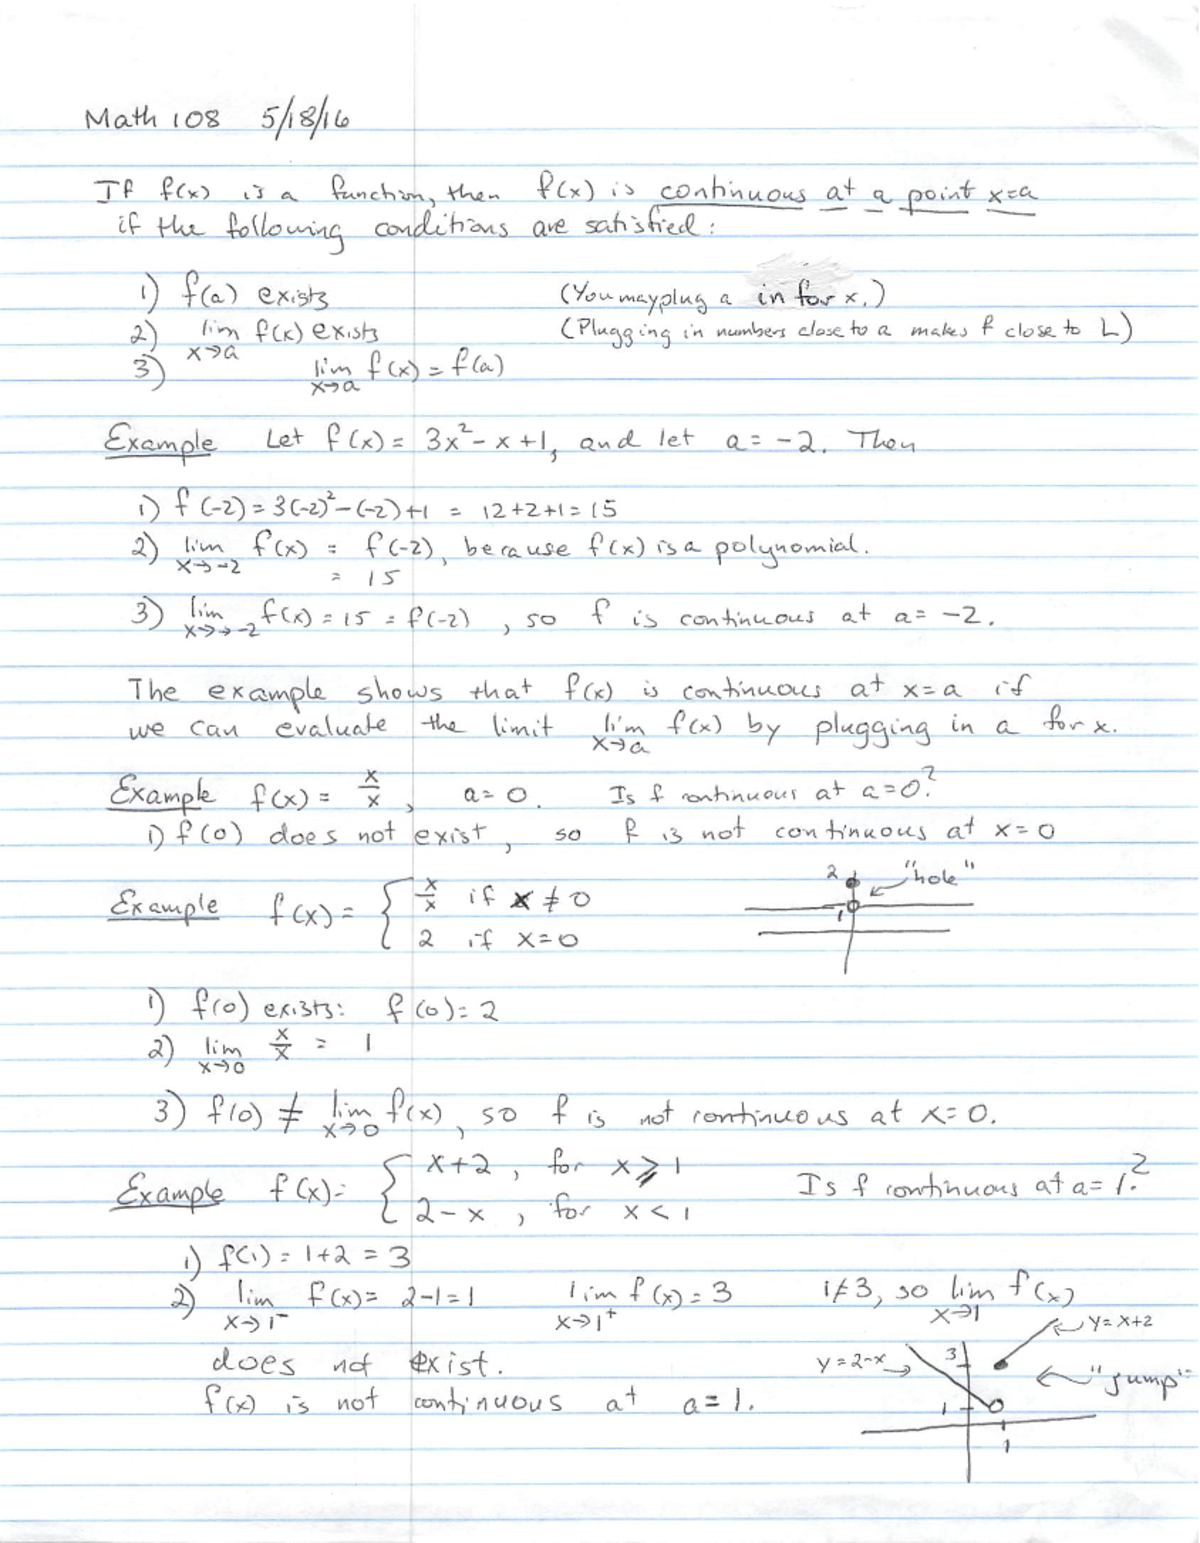 Math 108 5/18/16
If f(x) is a function, then f(x) is continuous at a point x=a
if the following conditions are satisfied:
1) f(a) exists (You may plug a in for x.)
2) lim x→a f(x) exists (Plugging in numbers close to a makes f close to L)
3) lim x→a f(x) = f(a)
Example Let f(x) = 3x² - x + 1, and let a = -2. Then
1) f(-2) = 3(-2)² - (-2) + 1 = 12+2+1 = 15
2) lim x→-2 f(x) = f(-2), because f(x) is a polynomial.
= 15
3) lim x→→-2 f(x) = 15 = f(-2), so f is continuous at a = -2.
The example shows that f(x) is continuous at x=a if
we can evaluate the limit lim x→a f(x) by plugging in a for x.
Example f(x) = x/x, a = 0. Is f continuous at a=0?
1) f(0) does not exist, so f is not continuous at x=0
Example f(x) = { x/x if x ≠ 0
2 if x=0
2 "hole"
1
1) f(0) exists: f(0) = 2
2) lim x→0 x/x = 1
3) f(0) ≠ lim x→0 f(x), so f is not continuous at x=0.
Example f(x) = { x+2, for x ⩾ 1 Is f continuous at a=1?
2-x, for x < 1
1) f(1) = 1+2 = 3
2) lim x→1⁻ f(x) = 2-1 = 1 lim x→1⁺ f(x) = 3 1≠3, so lim x→1 f(x)
does not exist.
f(x) is not continuous at a = 1.
y = x+2
y = 2-x 3 "jump"
1
1